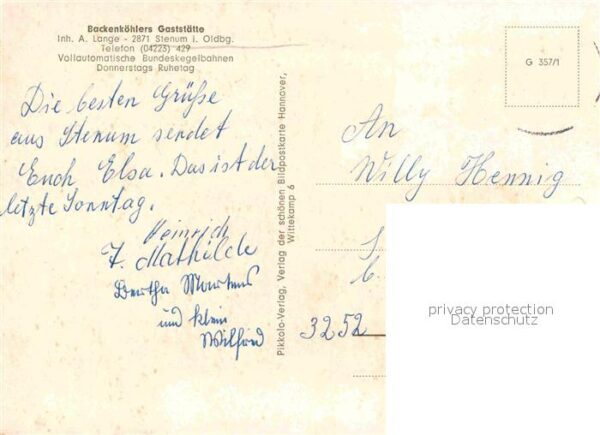 Backenköhlers Gaststätte
Inh. A. Lange - 2871 Stenum i. Oldbg.
Telefon (04223) 429
Vollautomatische Bundeskegelbahnen
Donnerstags Ruhetag
G 357/1
Die besten Grüße
aus Stenum sendet
Euch Elsa. Das ist der
letzte Sonntag.
Heinrich
F. Mathilde
Bertha Martens
und klein
Wilfried
Pikkolo-Verlag, Verlag der schönen Bildpostkarte Hannover,
Wittekamp 6
An
Willy Hennig
3252
privacy protection
Datenschutz